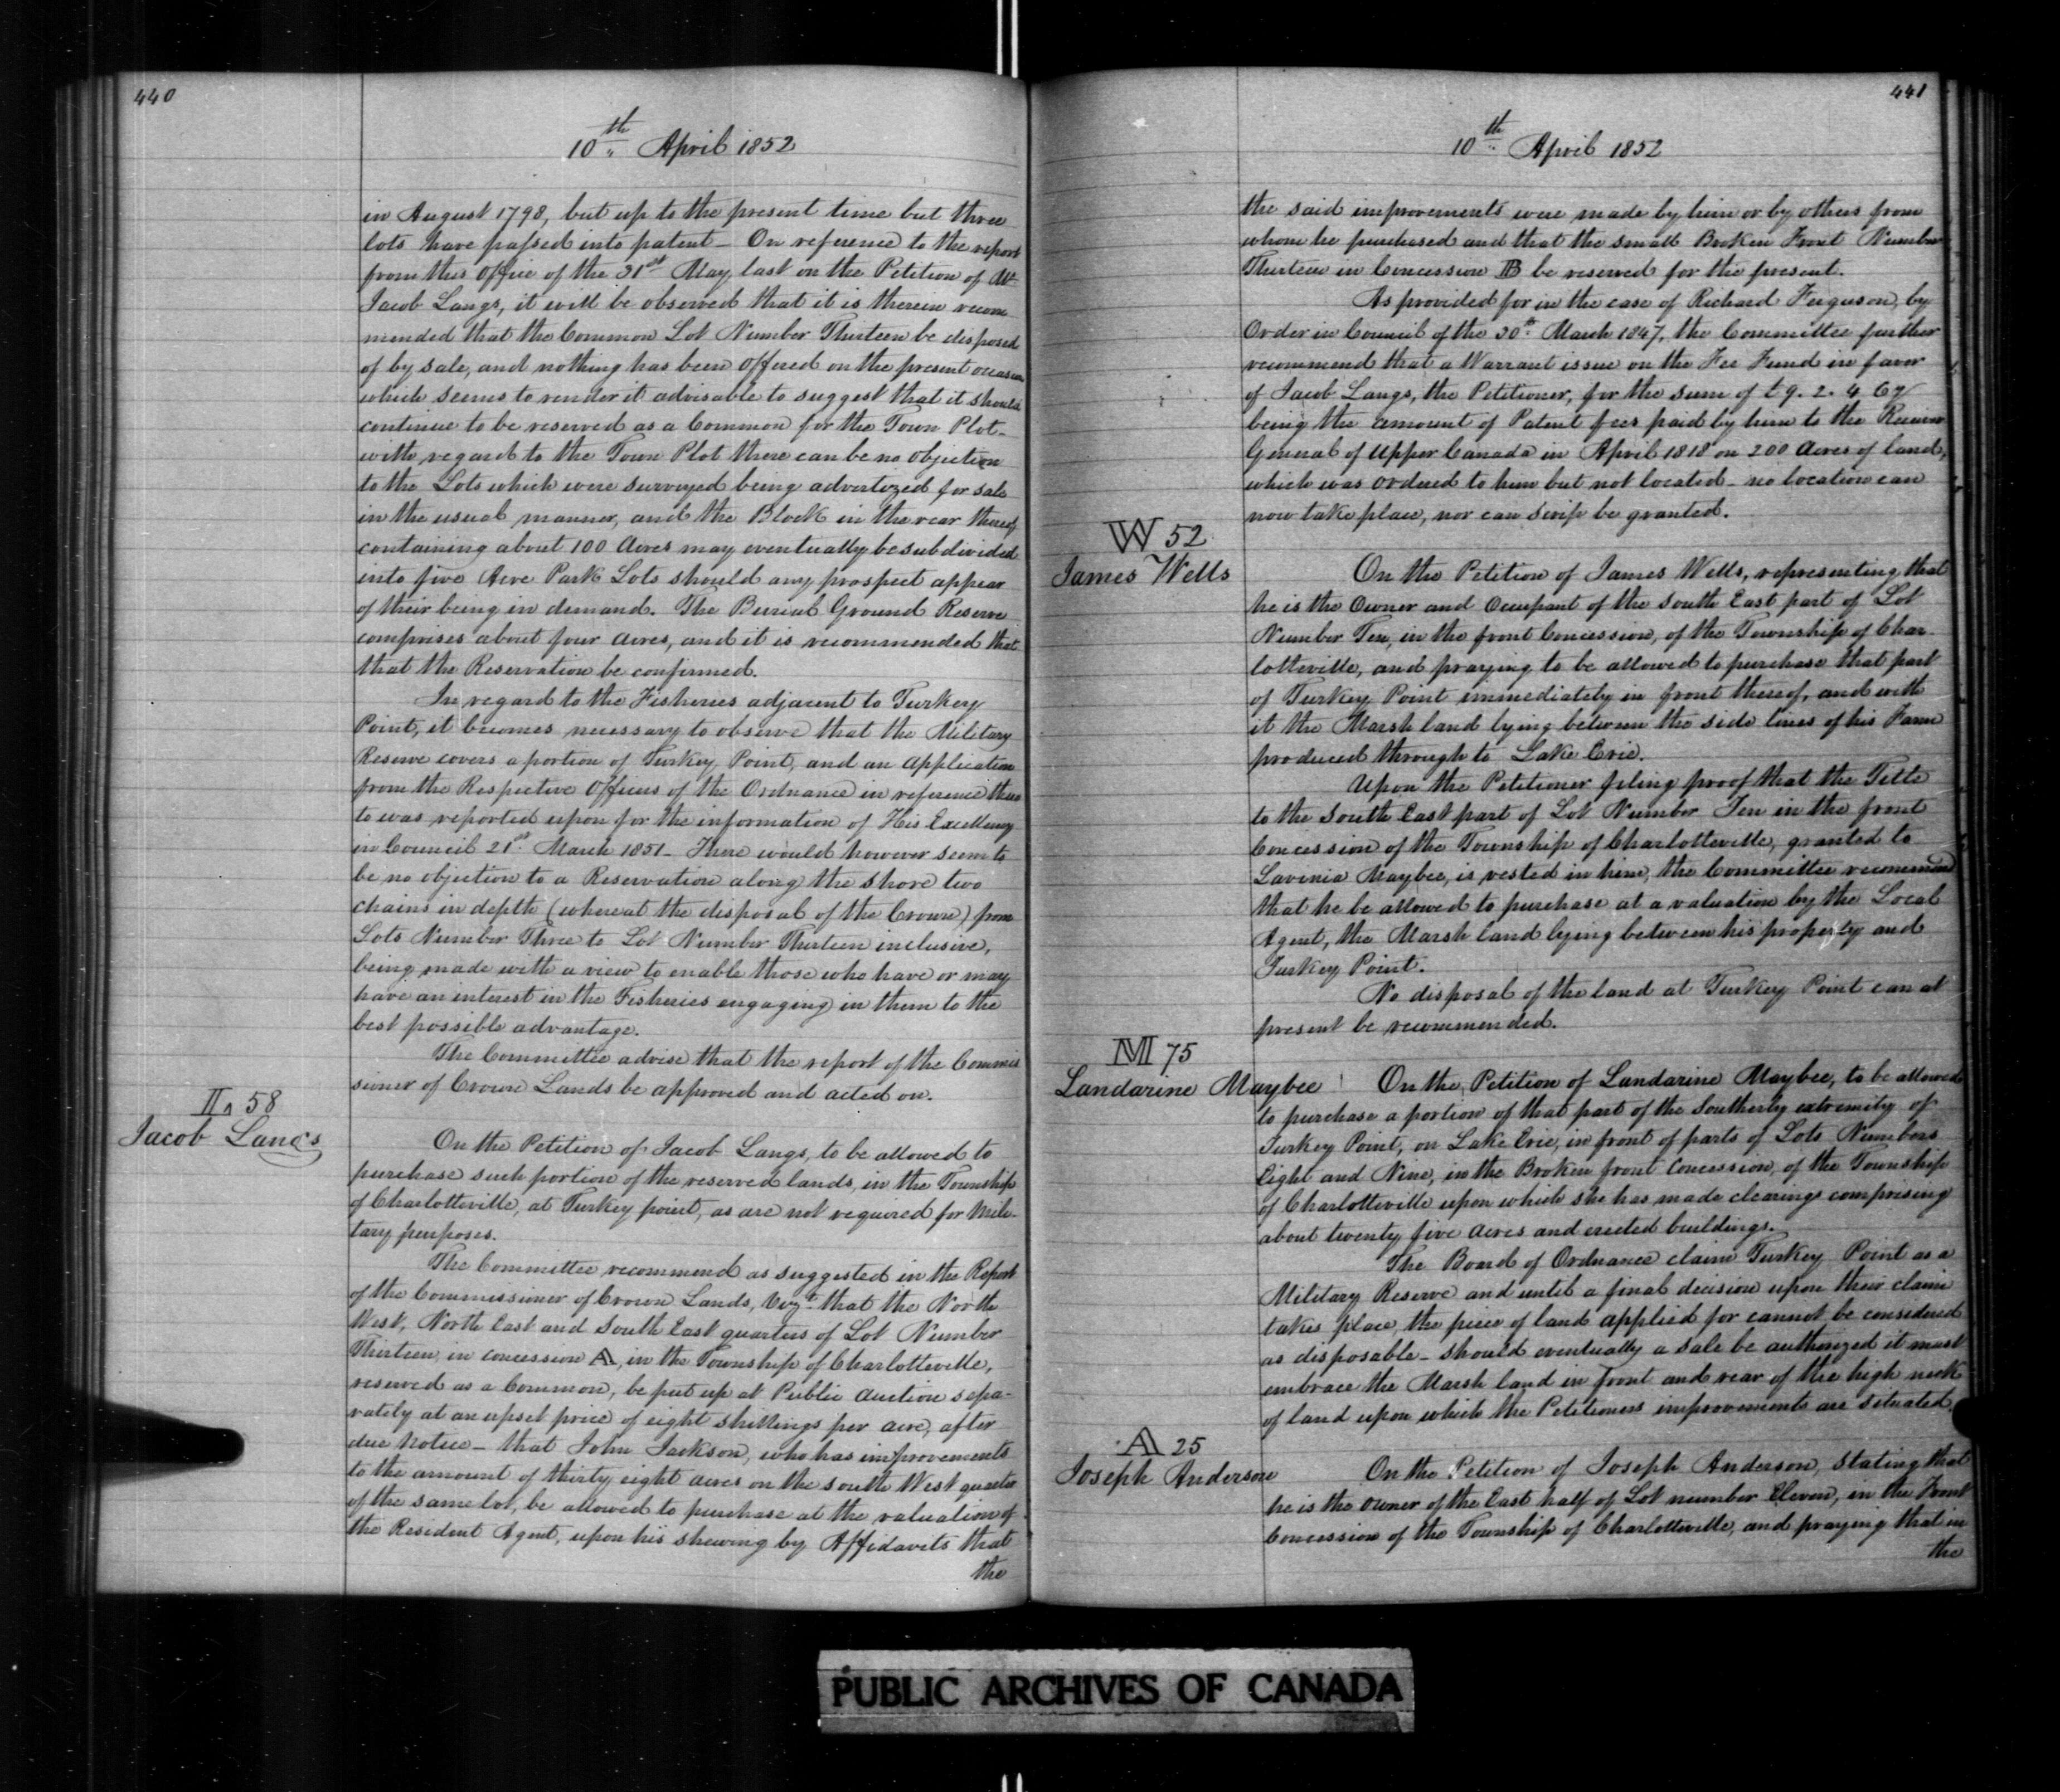 440
10th April 1852
in August 1798, but up to the present time but three
lots have passed into patent – On reference to the report
from this Office of the 31st May last on the Petition of Mr
Jacob Langs, it will be observed that it is therein recom
mended that the Common Lot Number Thirteen be disposed
of by sale, and nothing has been offered on the present occasion
which seems to render it advisable to suggest that it should
continue to be reserved as a Common for the Town Plot –
with regard to the Town Plot there can be no objection
to the Lots which were surveyed being advertized for sale
in the usual manner, and the Block in the rear thereof
containing about 100 Acres may eventually be subdivided
into five Acre Park Lots should any prospect appear
of their being in demand. The Burial Ground Reserve
comprises about four acres, and it is recommended that
that the Reservation be confirmed.
In regard to the Fisheries adjacent to Turkey
Point, it becomes necessary to observe that the Military
Reserve covers a portion of Turkey Point, and an application
from the Respective Officers of the Ordnance in reference there
to was reported upon for the information of His Excellency
in Council 21st March 1851 – There would however seem to
be no objection to a Reservation along the shore two
chains in depth (where at the disposal of the Crown) from
Lots Number Three to Lot Number Thirteen inclusive,
being made with a view to enable those who have or may
have an interest in the Fisheries engaging in them to the
best possible advantage.
The Committee advise that the report of the Commis
sioner of Crown Lands be approved and acted on.
58
Jacob Langs
On the Petition of Jacob Langs, to be allowed to
purchase such portion of the reserved lands, in the Township
of Charlotteville, at Turkey point, as are not required for Mili-
tary purposes.
The Committee recommend as suggested in the Report
of the Commissioner of Crown Lands, Vizt. that the North
West, North East and South East quarters of Lot Number
Thirteen, in concession A, in the Township of Charlotteville,
reserved as a Common, be put up at Public Auction sepa-
rately at an upset price of eight shillings per acre, after
due Notice – that John Jackson, who has improvements
to the amount of thirty eight acres on the South West quarter
of the same lot, be allowed to purchase at the valuation of
the Resident Agent, upon his shewing by Affidavits that
the
441
10th April 1852
the said improvements were made by him or by others from
whom he purchased and that the small Broken Front Number
Thirteen in Concession B be reserved for the present.
As provided for in the case of Richard Ferguson, by
Order in Council of the 30th March 1847, the Committee further
recommend that a Warrant issue on the Fee Fund in favor
of Jacob Langs, the Petitioner, for the sum of £9. 2. 4 Cy
being the amount of Patent fees paid by him to the Receiver
General of Upper Canada in April 1818 on 200 Acres of land,
which was ordered to him but not located – no location can
now take place, nor can Scrip be granted.
W 52
James Wells
On the Petition of James Wells, representing that
he is the Owner and Occupant of the South East part of Lot
Number Ten, in the front Concession, of the Township of Char-
lotteville, and praying to be allowed to purchase that part
of Turkey Point immediately in front thereof, and with
it the Marsh land lying between the side lines of his Farm
produced through to Lake Erie.
Upon the Petitioner filing proof that the Title
to the South East part of Lot Number Ten in the front
Concession of the Township of Charlotteville, granted to
Lavenia Maybee, is vested in him, the Committee recommend
that he be allowed to purchase at a valuation by the Local
Agent, the Marsh land lying between his property and
Turkey Point.
No disposal of the land at Turkey Point can at
present be recommended.
M 75
Landarine Maybee
On the Petition of Landarine Maybee, to be allowed
to purchase a portion of that part of the Southerly extremity of
Turkey Point, on Lake Erie, in front of parts of Lots Numbers
Eight and Nine, in the Broken front Concession, of the Township
of Charlotteville upon which she has made clearings comprising
about twenty five Acres and erected buildings.
The Board of Ordnance claim Turkey Point as a
Military Reserve and until a final decision upon their claim
takes place, the piece of land applied for cannot be considered
as disposable – should eventually a sale be authorized it must
embrace the Marsh land in front and rear of the high neck
of land upon which the Petitioners improvements are situated
A 25
Joseph Anderson
On the Petition of Joseph Anderson, stating that
he is the owner of the East half of Lot number Eleven, in the Front
Concession of the Township of Charlotteville, and praying that in
the
PUBLIC ARCHIVES OF CANADA